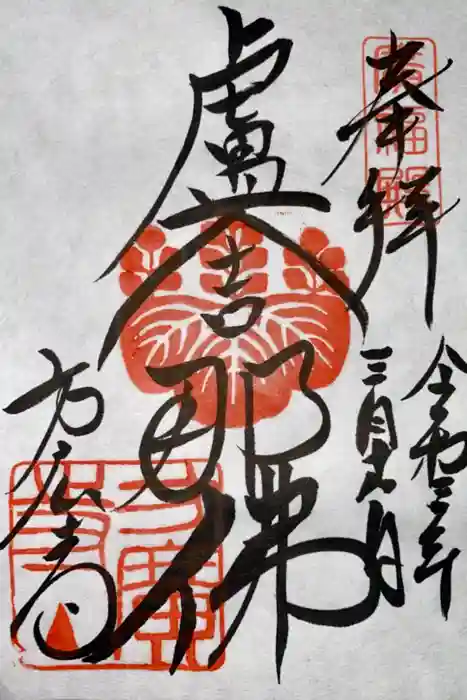 奉拝
令和三年
三月十八日
盧舎那佛
方広寺